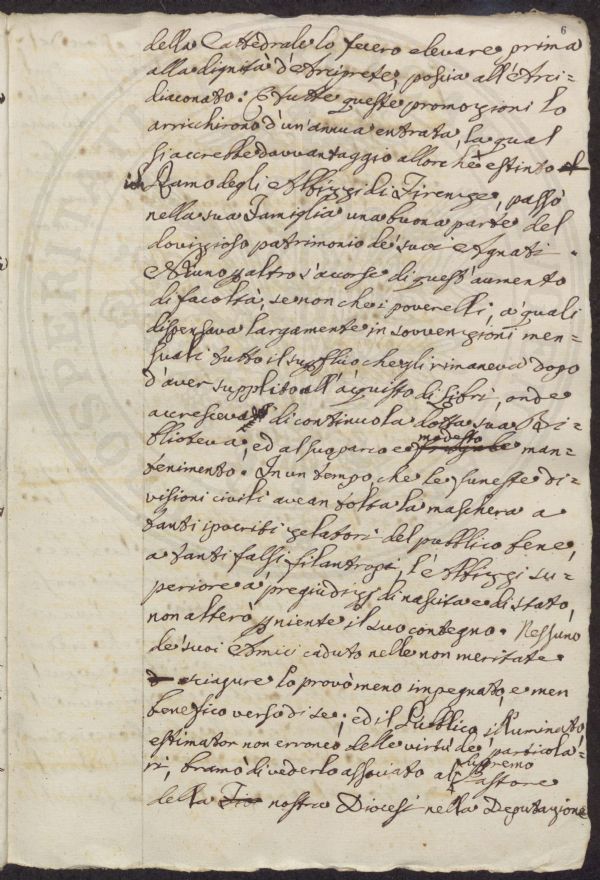 6
della Cattedrale lo fecero elevare prima
alla dignità d'Arciprete, poscia all'Arci=
diaconato: E tutte queste promozioni lo
arricchirono d'un'annua entrata, la qual
si accrebbe davvantaggio allorchè estinto il
Ramo degli Albizzi di Firenze, passò
nella sua Famiglia una buona parte del
dovizzioso patrimonio de' suoi Agnati.
Niuno per altro s'accorse di quest'aumento
di facoltà, se non che i poverelli, a' quali
dispensava largamente in sovvenzioni men=
suali tutto il superfluo che gli rimaneva dopo
d'aver supplito all'acquisto di Libri, onde
accresceva di continuo la dotta sua Bi=
blioteca, ed al suo parco e frugale modesto man=
tenimento. In un tempo che le funeste di=
visioni civili avean tolta la maschera a
tanti ipocriti zelatori del pubblico bene,
a tanti falsi filantropi, l'Albizzi su=
periore a' pregiudizj di nascita e di stato,
non alterò per niente il suo contegno. Nessuno
de' suoi Amici caduto nelle non meritate
sciagure lo provò meno impegnato, e men
benefico verso di se; ed il Pubblico illuminato,
estimator non erroneo delle virtù de' particola=
ri, bramò di vederlo associato al supremo Pastore
della nostra Diocesi nella Deputazione